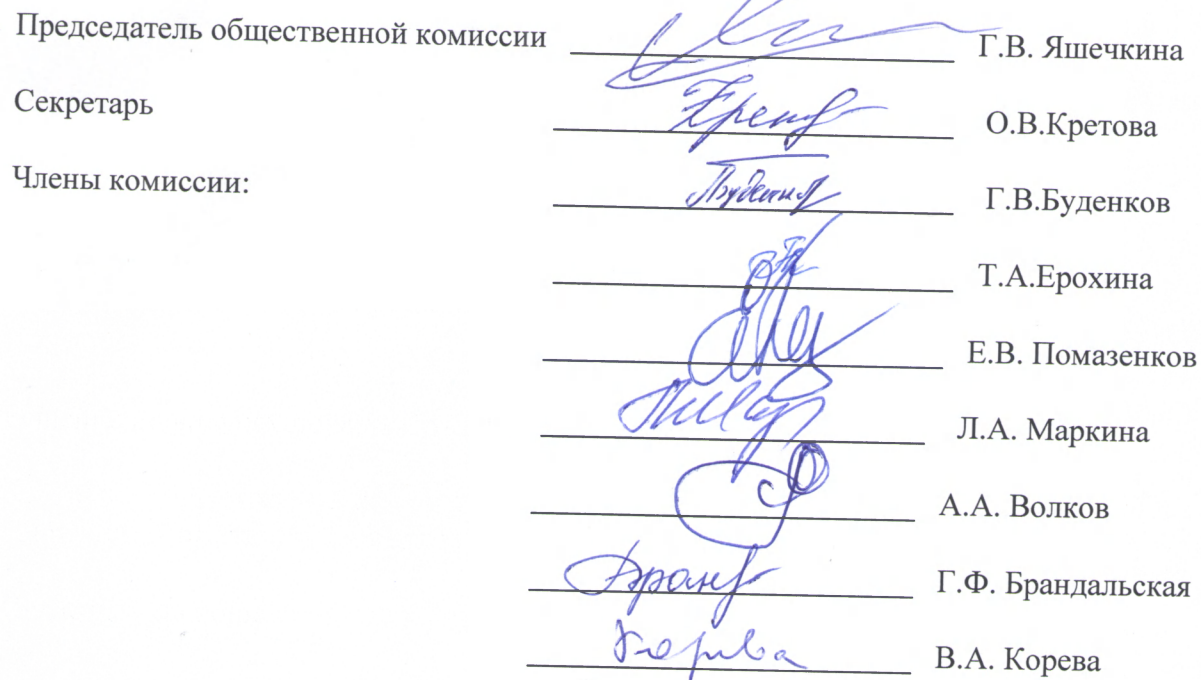 Председатель общественной комиссии Г.В. Яшечкина
Секретарь О.В.Кретова
Члены комиссии: Г.В.Буденков
Т.А.Ерохина
Е.В. Помазенков
Л.А. Маркина
А.А. Волков
Г.Ф. Брандальская
В.А. Корева